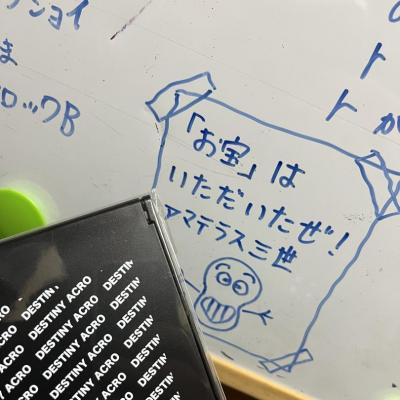 ショイ
ま
ロックB
ト
ト が
「お宝」は
いただいたぜ!
アマテラス三世
DESTIN
DESTINY ACRO DESTIN
DESTINY ACRO DESTIN
DESTINY ACRO DESTIN
ACRO DESTINY ACRO DESTIN
ACRO DESTINY ACRO DESTIN
Y ACRO DESTINY ACRO DESTIN